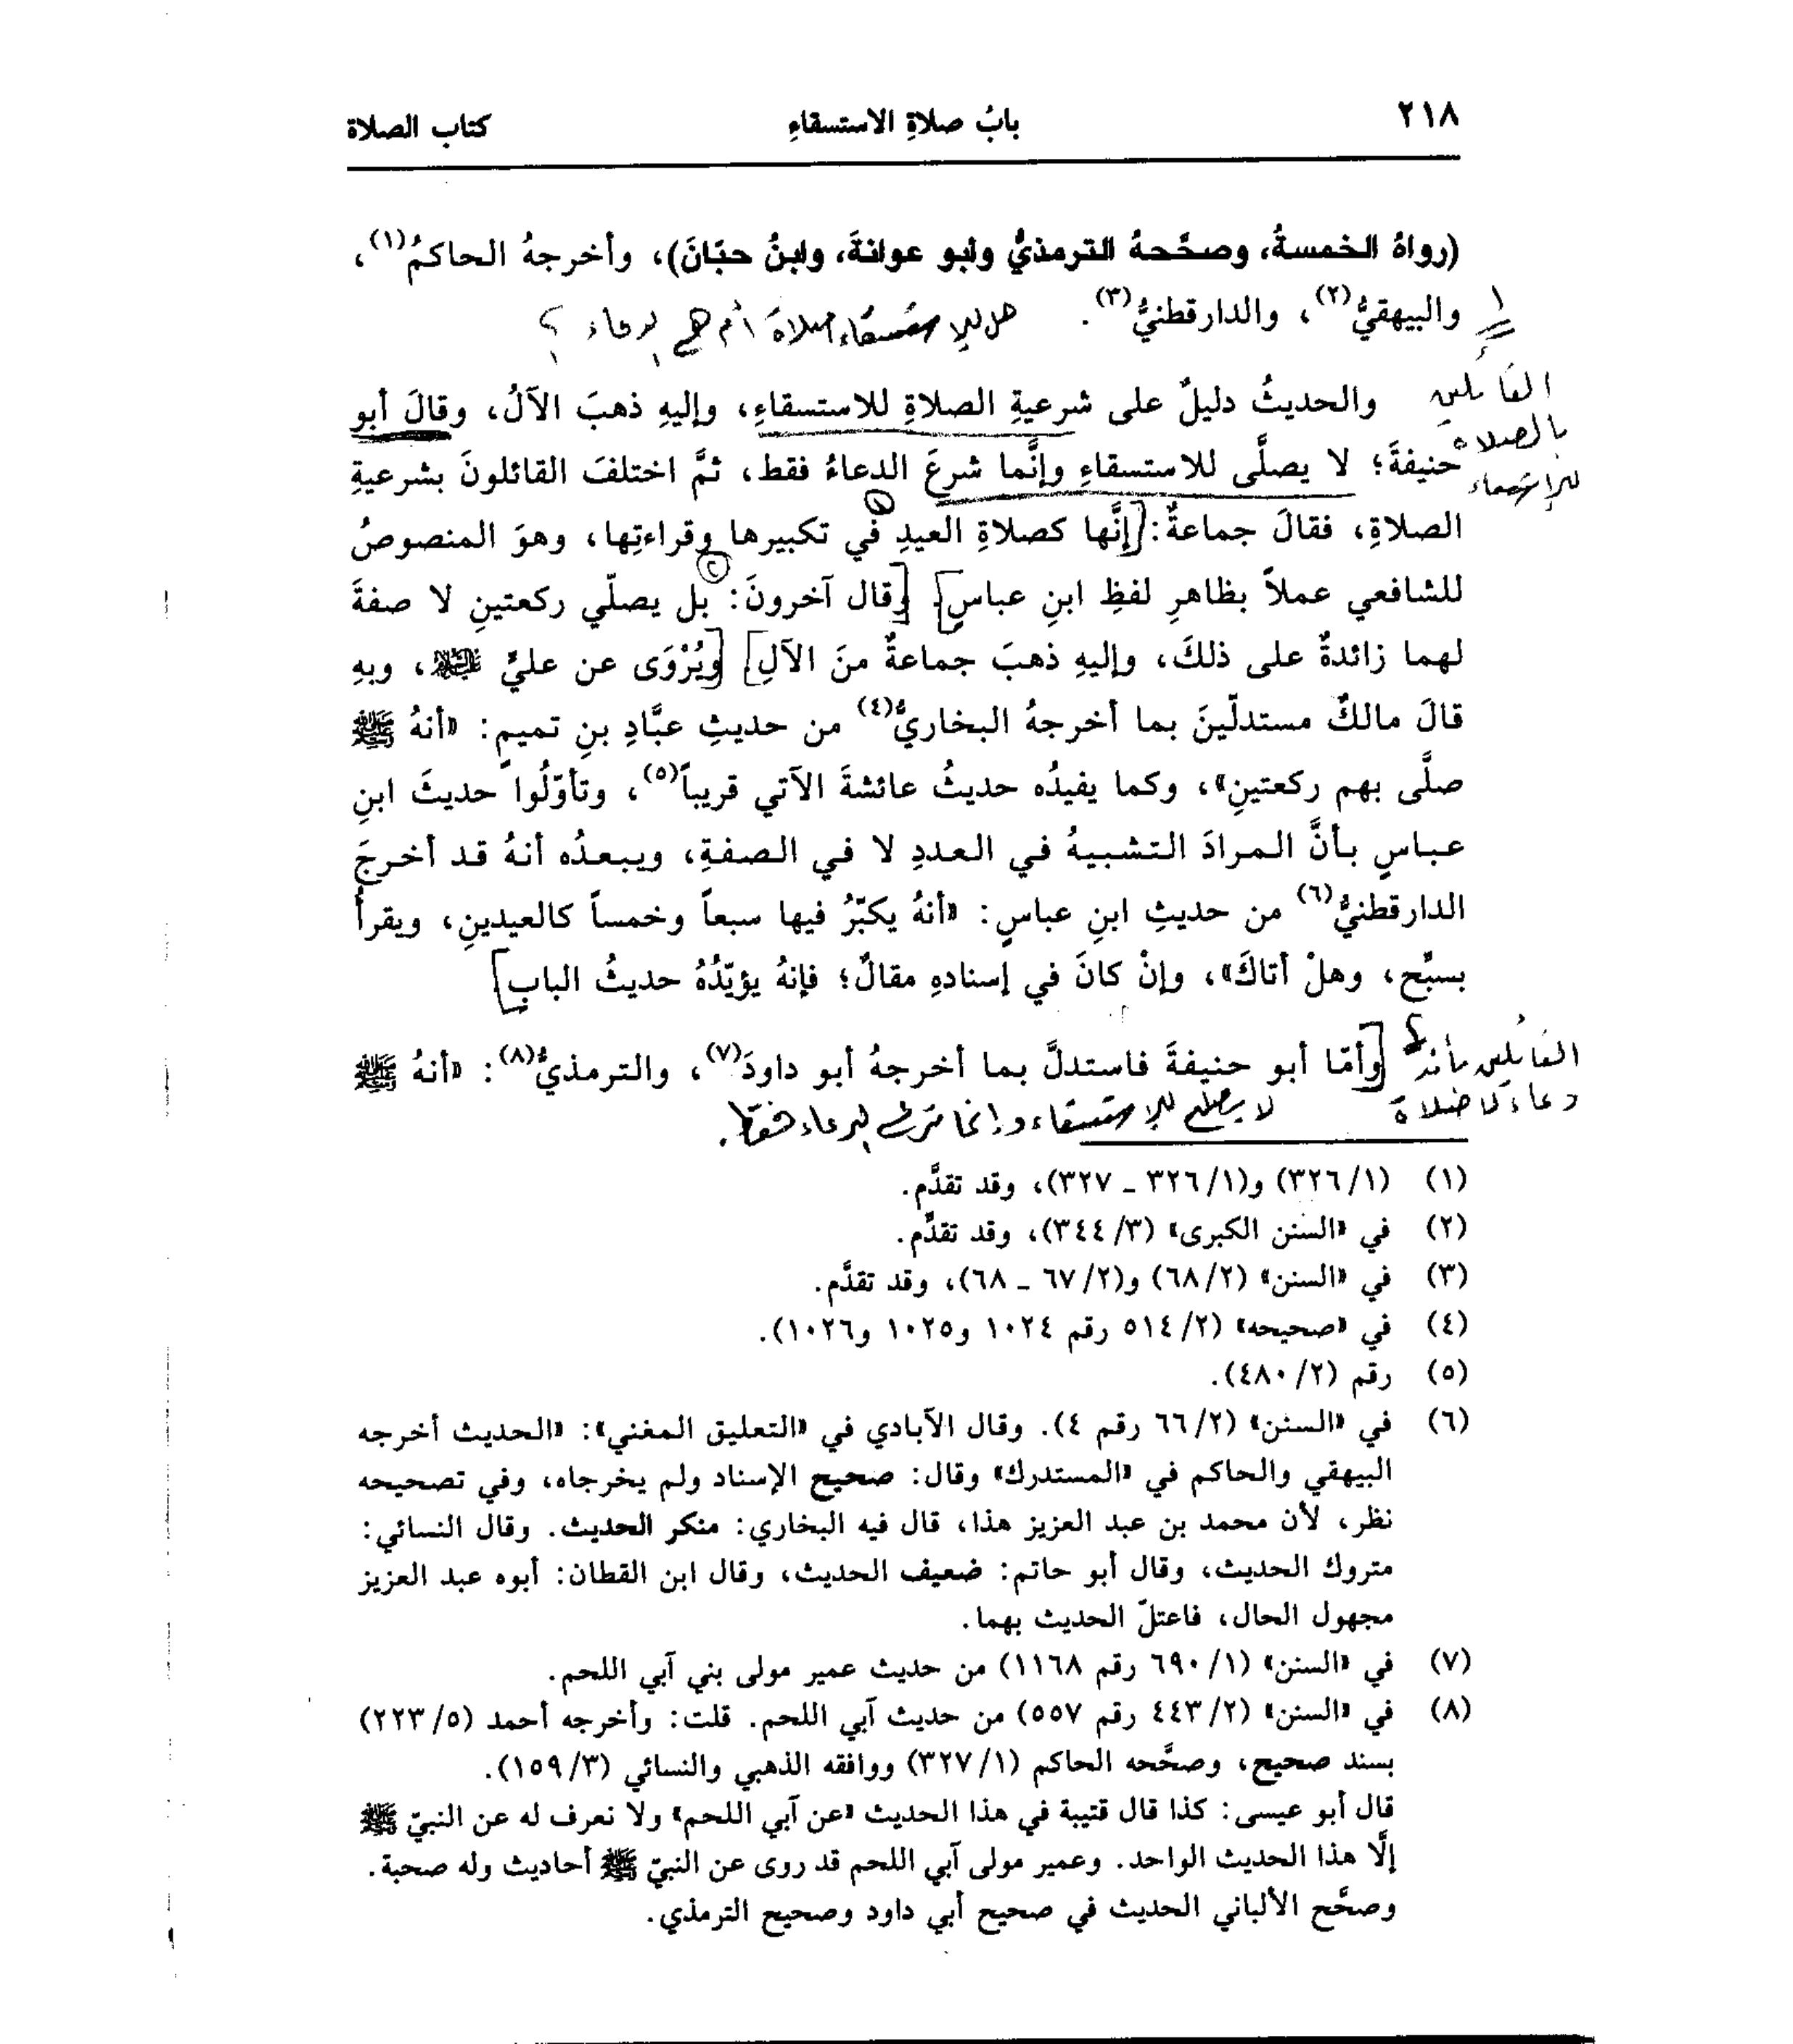 ٢١٨
بابُ صلاةِ الاستسقاءِ
كتاب الصلاة
(رواهُ الخمسةُ، وصحَّحهُ الترمذيُّ وأبو عوانةَ، وابنُ حبّانَ)، وأخرجهُ الحاكمُ(١)،
والبيهقيُّ(٢)، والدارقطنيُّ(٣).
هل للاستسقاء صلاة أم هي دعاء ؟
القائلين
بالصلاة
للاستسقاء
والحديثُ دليلٌ على شرعيةِ الصلاةِ للاستسقاءِ، وإليهِ ذهبَ الآلُ، وقالَ أبو
حنيفةَ؛ لا يصلَّى للاستسقاءِ وإنَّما شرعَ الدعاءُ فقط، ثمَّ اختلفَ القائلونَ بشرعيةِ
الصلاةِ، فقالَ جماعةٌ: [إنَّها كصلاةِ العيدِ في تكبيرها وقراءتِها، وهوَ المنصوصُ
للشافعي عملاً بظاهرِ لفظِ ابنِ عباسٍ] [وقال آخرونَ: بل يصلّي ركعتينِ لا صفةَ
لهما زائدةٌ على ذلكَ، وإليهِ ذهبَ جماعةٌ منَ الآلِ] [ويُرْوَى عن عليٍّ عليه السلام، وبهِ
قالَ مالكٌ مستدلّينَ بما أخرجهُ البخاريُّ(٤) من حديثِ عبَّادِ بنِ تميمٍ: «أنهُ ﷺ
صلَّى بهم ركعتينِ»، وكما يفيدُه حديثُ عائشةَ الآتي قريباً(٥)، وتأوّلُوا حديثَ ابنِ
عباسٍ بأنَّ المرادَ التشبيهُ في العددِ لا في الصفةِ، ويبعدُه أنهُ قد أخرجَ
الدارقطنيُّ(٦) من حديثِ ابنِ عباسٍ: «أنهُ يكبّرُ فيها سبعاً وخمساً كالعيدينِ، ويقرأُ
بسبِّح، وهلْ أتاكَ»، وإنْ كانَ في إسنادهِ مقالٌ؛ فإنهُ يؤيّدُهُ حديثُ البابِ]
القائلين بأنه
دعاء لا صلاة
[وأمّا أبو حنيفةَ فاستدلَّ بما أخرجهُ أبو داودَ(٧)، والترمذيُّ(٨): «أنهُ ﷺ
لا يصلى للاستسقاء وإنما شرع الدعاء فقط.
(١) (٣٢٦/١) و(٣٢٦/١ - ٣٢٧)، وقد تقدَّم.
(٢) في «السنن الكبرى» (٣٤٤/٣)، وقد تقدَّم.
(٣) في «السنن» (٦٨/٢) و(٦٧/٢ - ٦٨)، وقد تقدَّم.
(٤) في «صحيحه» (٥١٤/٢ رقم ١٠٢٤ و١٠٢٥ و١٠٢٦).
(٥) رقم (٤٨٠/٢).
(٦) في «السنن» (٦٦/٢ رقم ٤). وقال الآبادي في «التعليق المغني»: «الحديث أخرجه
البيهقي والحاكم في «المستدرك» وقال: صحيح الإسناد ولم يخرجاه، وفي تصحيحه
نظر، لأن محمد بن عبد العزيز هذا، قال فيه البخاري: منكر الحديث. وقال النسائي:
متروك الحديث، وقال أبو حاتم: ضعيف الحديث، وقال ابن القطان: أبوه عبد العزيز
مجهول الحال، فاعتلّ الحديث بهما.
(٧) في «السنن» (٦٩٠/١ رقم ١١٦٨) من حديث عمير مولى بني آبي اللحم.
(٨) في «السنن» (٤٤٣/٢ رقم ٥٥٧) من حديث آبي اللحم. قلت: وأخرجه أحمد (٢٢٣/٥)
بسند صحيح، وصحَّحه الحاكم (٣٢٧/١) ووافقه الذهبي والنسائي (١٥٩/٣).
قال أبو عيسى: كذا قال قتيبة في هذا الحديث «عن آبي اللحم» ولا نعرف له عن النبيّ ﷺ
إلَّا هذا الحديث الواحد. وعمير مولى آبي اللحم قد روى عن النبيّ ﷺ أحاديث وله صحبة.
وصحَّح الألباني الحديث في صحيح أبي داود وصحيح الترمذي.